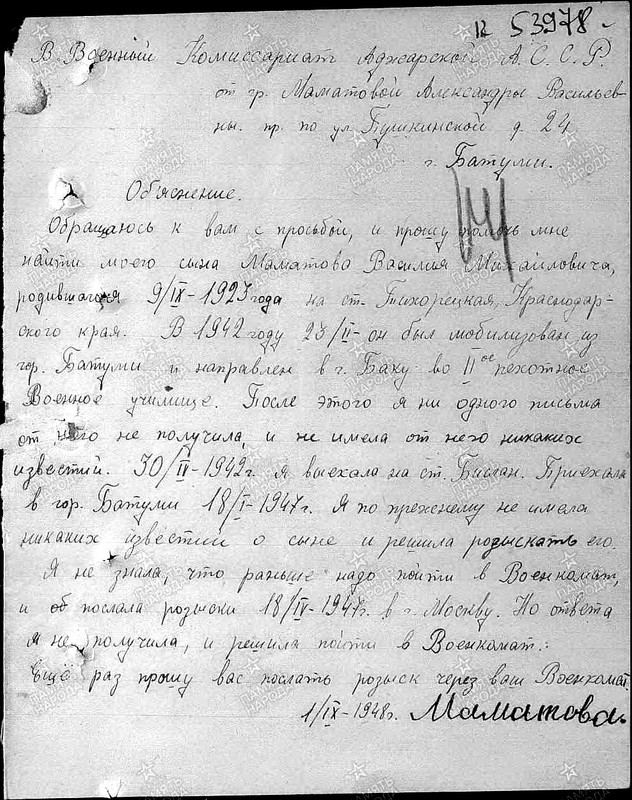 12 53978
В Военный Комиссариат Аджарской А.С.С.Р.
от гр. Маматовой Александры Васильев-
ны. пр. по ул. Пушкинской д. 24
г. Батуми.
Объяснение.
Обращаюсь к вам с просьбой, и прошу помочь мне
найти моего сына Маматова Василия Михайловича,
родившагося 9/IX-1923 года на ст. Тихорецкая, Краснодар-
ского края. В 1942 году 23/II он был мобилизован из
гор. Батуми и направлен в г. Баку во II ое пехотное
Военное училище. После этого я ни одного письма
от него не получила, и не имела от него никаких
известий. 30/IV-1942г. я выехала на ст. Бислан. Приехала
в гор. Батуми 18/I-1947г. Я по прежнему не имела
никаких известий о сыне и решила розыскать его.
Я не знала, что раньше надо пойти в Военкомат,
и об послала розыски 18/IV-1947г. в г. Москву. Но ответа
я не получила, и решила пойти в Военкомат.
Ещё раз прошу вас послать розыск через ваш Военкомат.
1/IX-1948г. Маматова.